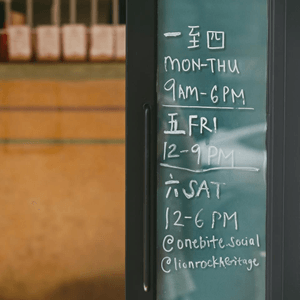 一至四
MON-THU
9AM-6PM
五 FRI
12-9PM
六 SAT
12-6PM
@onebite.social
@lionrockheritage